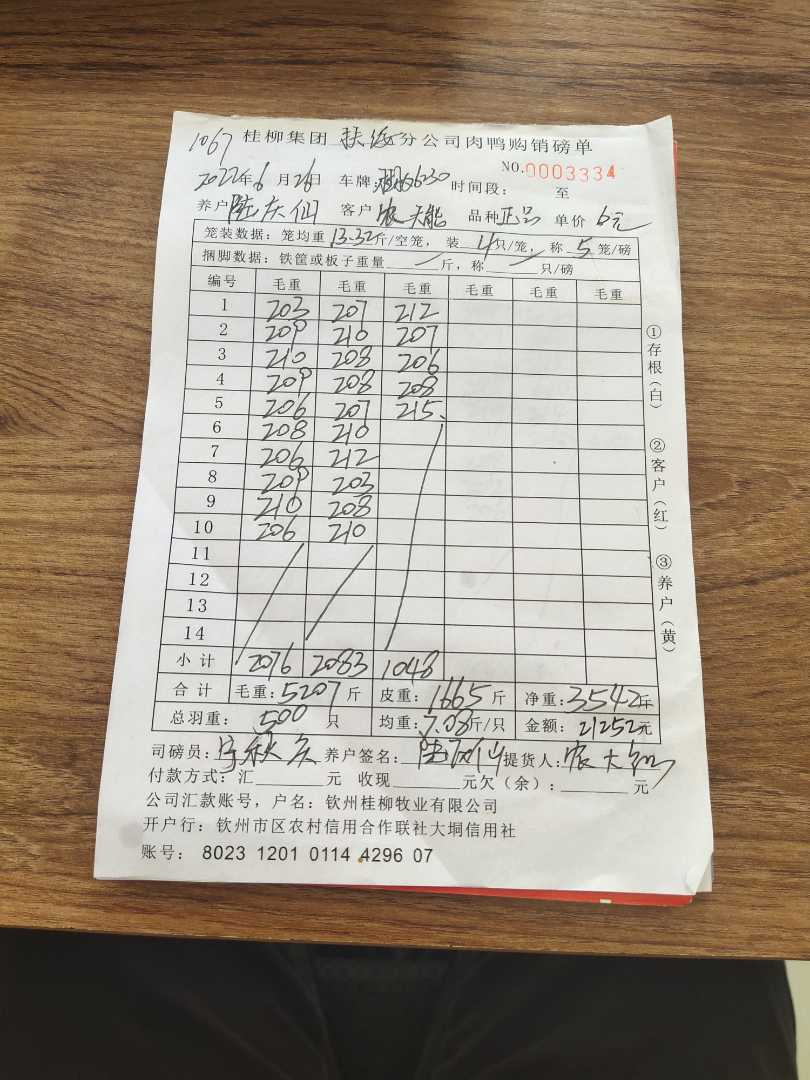 1067 桂柳集团 扶海 分公司肉鸭购销磅单
NO.0003334
2022年6月26日 车牌: 6630 时间段: 至
养户 陆庆仙 客户 农天能 品种 正品 单价 6元
笼装数据: 笼均重 13.32斤/空笼, 装 4只/笼, 称 5 笼/磅
捆脚数据: 铁筐或板子重量 / 斤, 称 / 只/磅
编号 毛重 毛重 毛重 毛重 毛重 毛重
1 203 207 212
2 209 210 207
3 210 208 206
4 209 208 208
5 206 207 215
6 208 210
7 206 212
8 209 203
9 210 208
10 206 210
11
12
13
14
小计 2076 2083 1048
合计 毛重: 5207 斤 皮重: 1665 斤 净重: 3542斤
总羽重: 500 只 均重: 7.08斤/只 金额: 21252元
司磅员: 养户签名: 陆庆仙 提货人: 农大
付款方式: 汇 元 收现 元欠(余): 元
公司汇款账号, 户名: 钦州桂柳牧业有限公司
开户行: 钦州市区农村信用合作联社大垌信用社
账号: 8023 1201 0114 4296 07
①存根(白)
②客户(红)
③养户(黄)